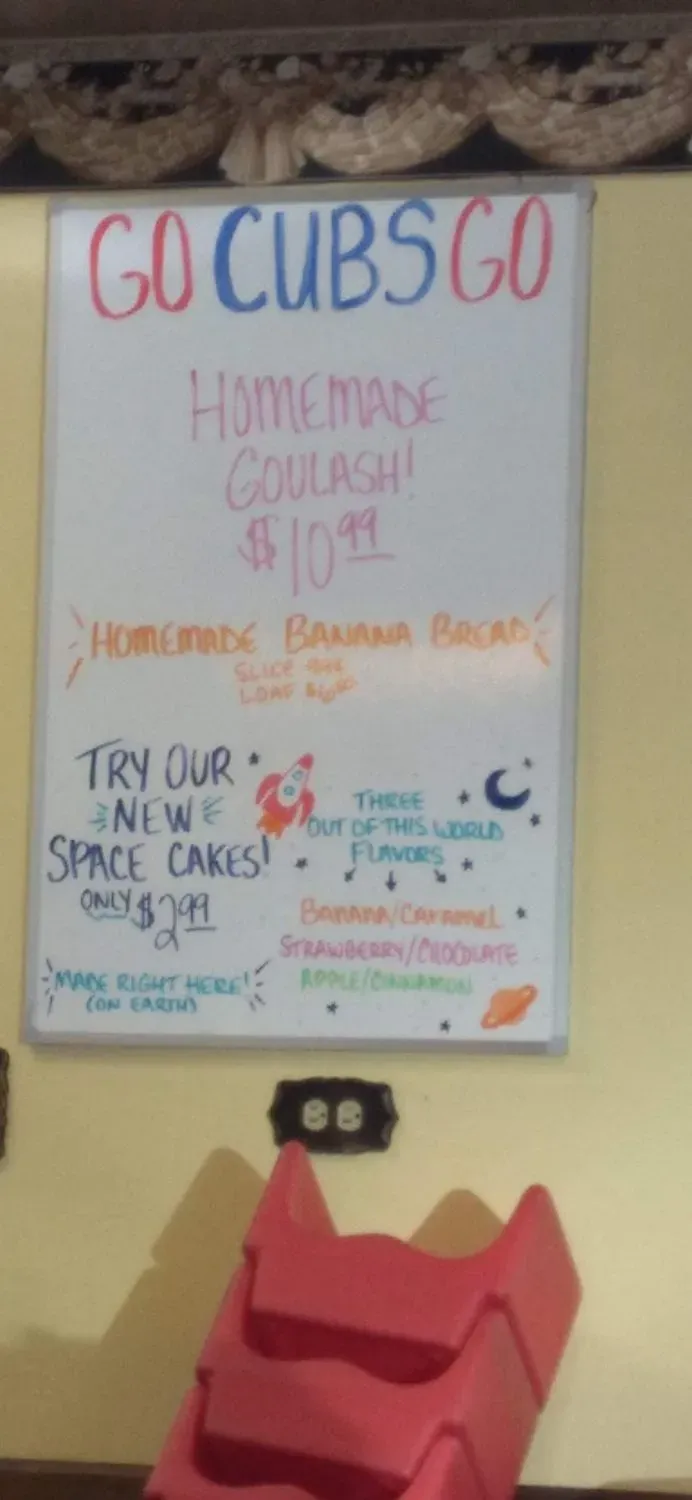 GO CUBS GO
HOMEMADE
GOULASH!
$10 99
HOMEMADE BANANA BREAD
SLICE 99¢
LOAF
TRY OUR
NEW
SPACE CAKES!
ONLY $2 99
MADE RIGHT HERE!
(ON EARTH)
THREE
OUT OF THIS WORLD
FLAVORS
BANANA/CARAMEL
STRAWBERRY/CHOCOLATE
APPLE/CINNAMON